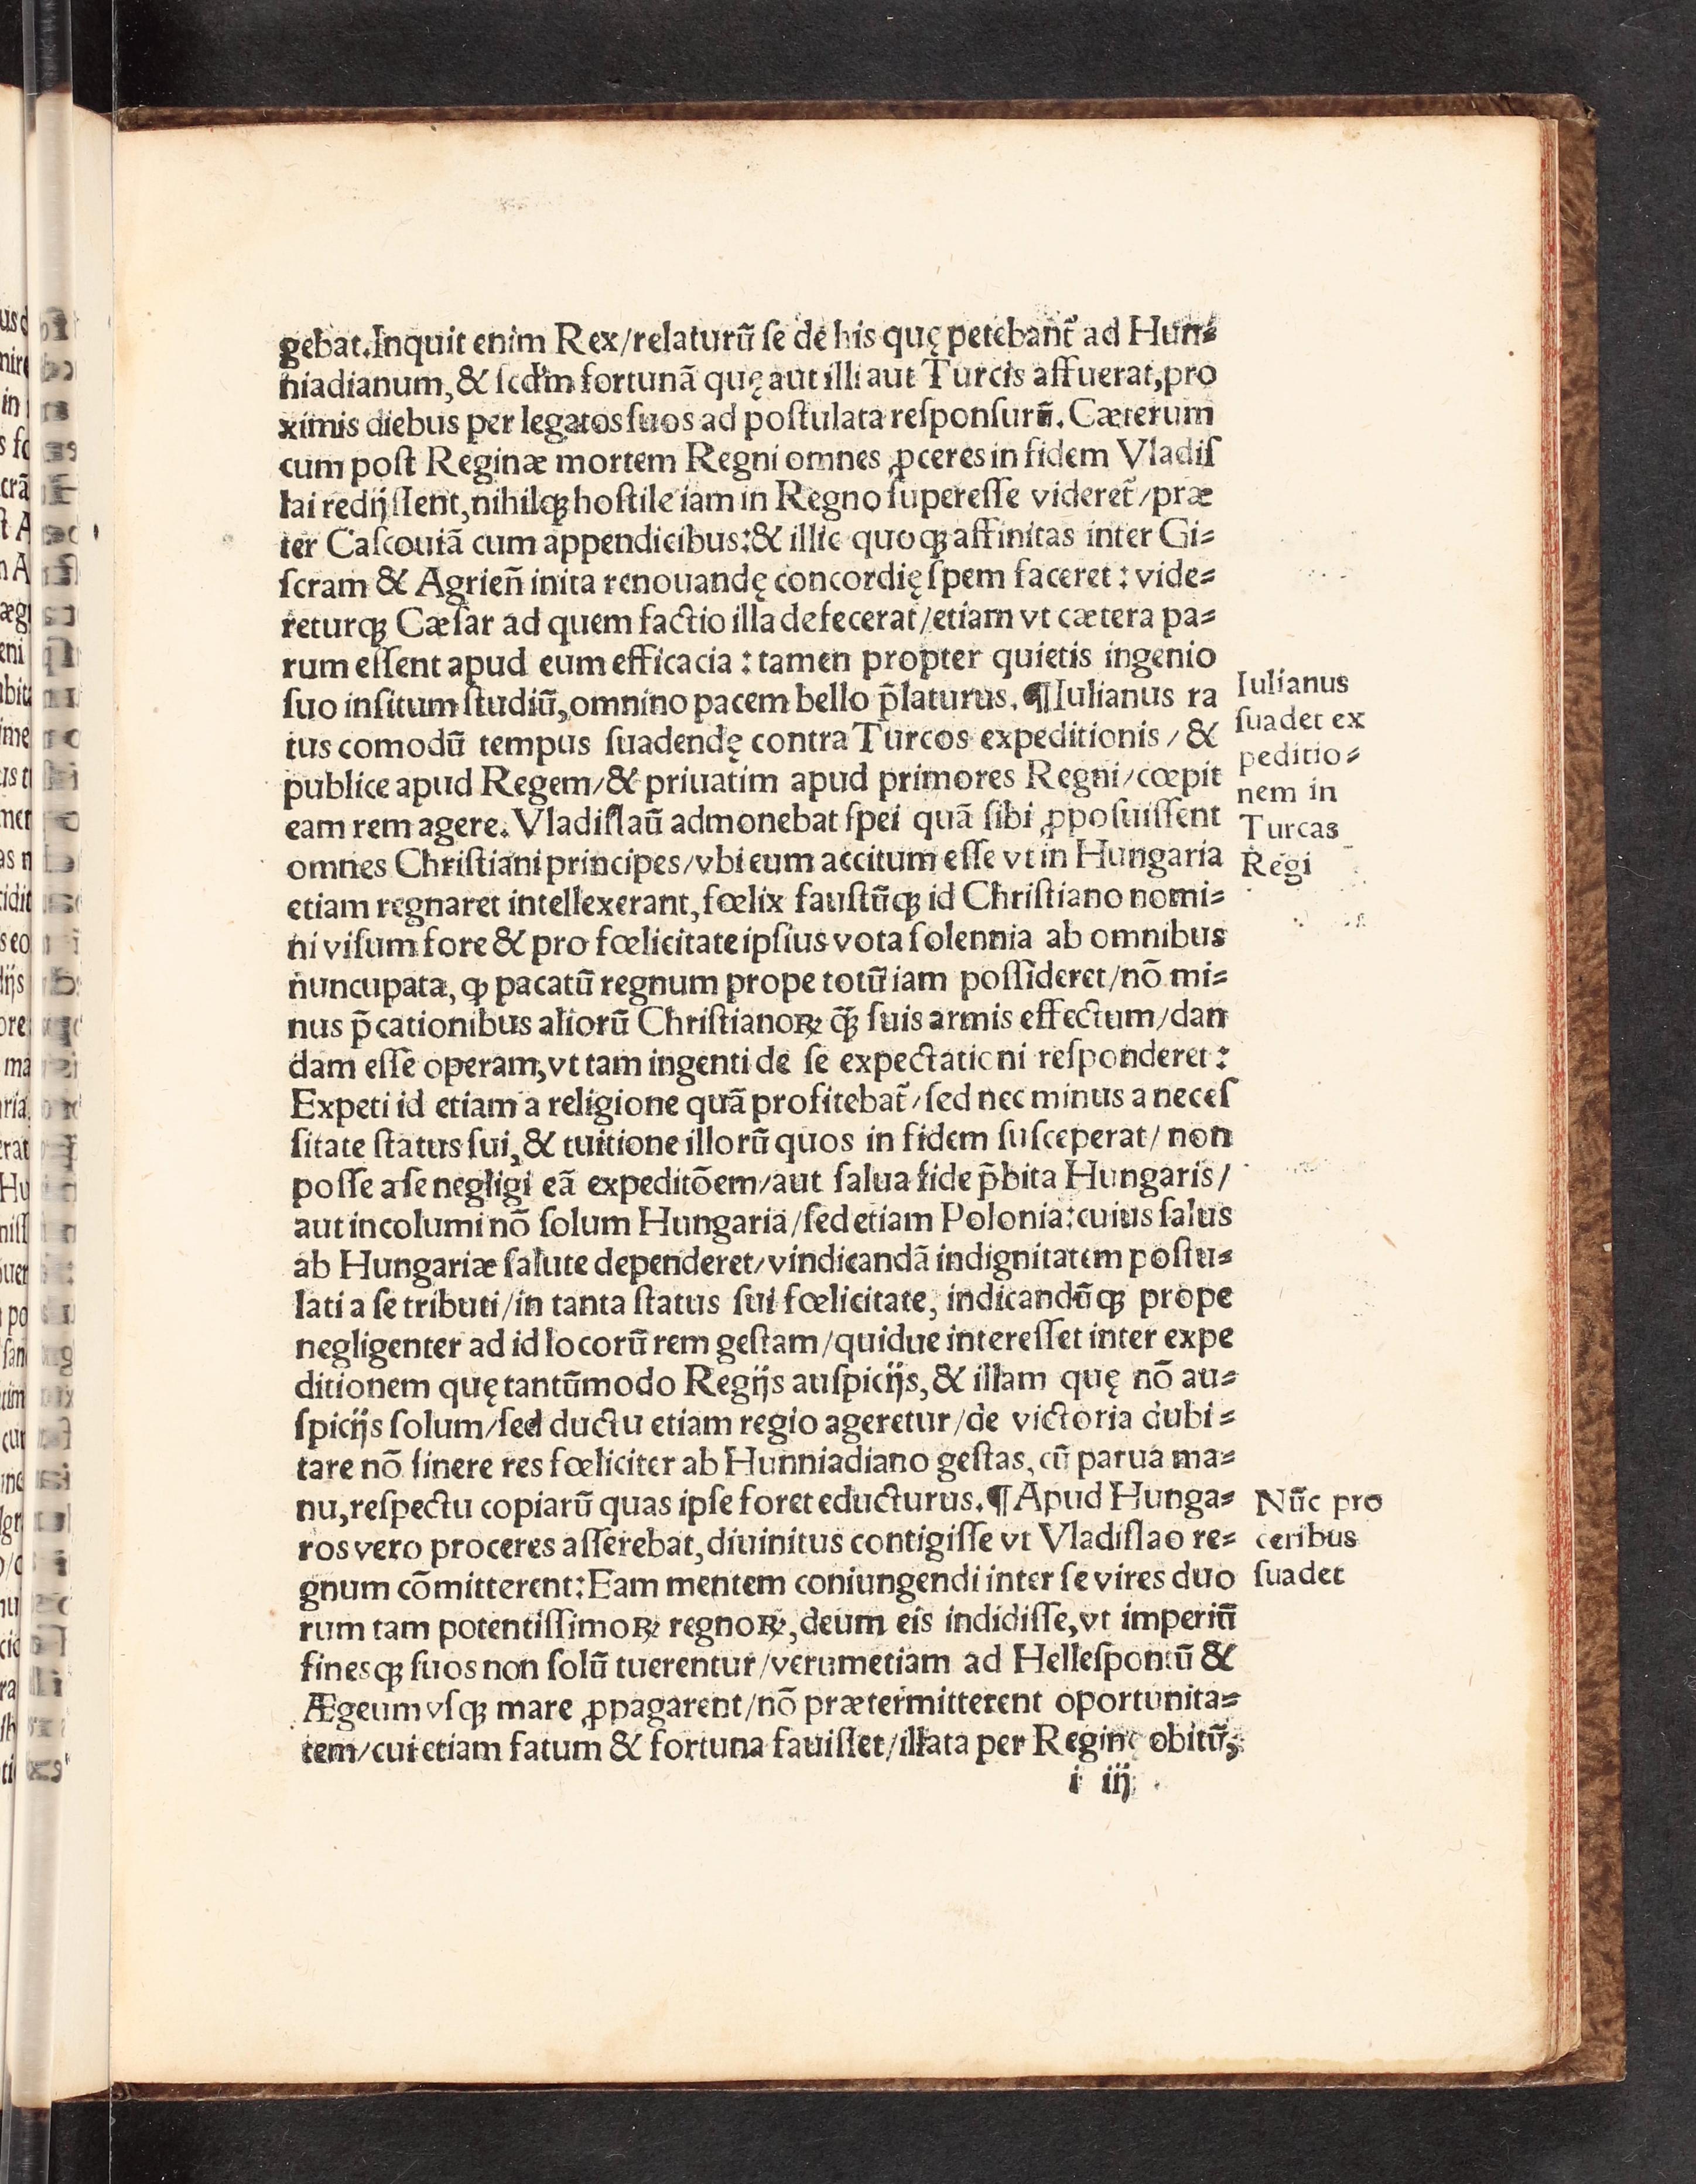 gebat.Inquit enim Rex/relaturũ ſe de his quę petebant᷑ ad Hun⸗
niadianum,& ſcdm̃ fortunã quę aut illi aut Turcis affuerat,pro
ximis diebus per legatos ſuos ad poſtulata reſponſurũ. Cæterum
cum poſt Reginæ mortem Regni omnes ꝓceres in fidem Vladiſ
lai redijſſent,nihilqꝫ hoſtile iam in Regno ſupereſſe videret᷑/præ
ter Caſcouiã cum appendicibus:& illic quoqꝫ affinitas inter Gi⸗
ſcram & Agrieñ inita renouandę concordię ſpem faceret : vide⸗
returqꝫ Cæſar ad quem factio illa defecerat/etiam vt cætera pa⸗
rum eſſent apud eum efficacia : tamen propter quietis ingenio
ſuo inſitum ſtudiũ,omnino pacem bello p̃laturus. ¶Iulianus ra
tus comodũ tempus ſuadendę contra Turcos expeditionis/&
publice apud Regem/& priuatim apud primores Regni/cœpit
eam rem agere. Vladiſlaũ admonebat ſpei quã ſibi ꝓpoſuiſſent
omnes Chriſtiani principes/vbi eum accitum eſſe vt in Hungaria
etiam regnaret intellexerant,fœlix fauſtũqꝫ id Chriſtiano nomi⸗
ni viſum fore & pro fœlicitate ipſius vota ſolennia ab omnibus
nuncupata, ꝙ pacatũ regnum prope totũ iam poſſideret/nõ mi⸗
nus p̃cationibus aliorũ Chriſtianoꝝ q̃ꝫ ſuis armis effectum/dan
dam eſſe operam,vt tam ingenti de ſe expectationi reſponderet :
Expeti id etiam a religione quã profitebat᷑/ſed nec minus a neceſ
ſitate ſtatus ſui,& tuitione illorũ quos in fidem ſuſceperat/non
poſſe a ſe negligi eã expeditõem/aut ſalua fide p̃bita Hungaris/
aut incolumi nõ ſolum Hungaria/ſed etiam Polonia:cuius ſalus
ab Hungariæ ſalute dependeret/vindicandã indignitatem poſtu⸗
lati a ſe tributi/in tanta ſtatus ſui fœlicitate, indicandũqꝫ prope
negligenter ad id locorũ rem geſtam/quidue intereſſet inter expe
ditionem quę tantũmodo Regijs auſpicijs,& illam quę nõ au⸗
ſpicijs ſolum/ſed ductu etiam regio ageretur/de victoria dubi⸗
tare nõ ſinere res fœliciter ab Hunniadiano geſtas, cũ parua ma⸗
nu,reſpectu copiarũ quas ipſe foret educturus.¶Apud Hunga⸗
ros vero proceres aſſerebat,diuinitus contigiſſe vt Vladiſlao re⸗
gnum cõmitterent:Eam mentem coniungendi inter ſe vires duo
rum tam potentiſſimoꝝ regnoꝝ,deum eis indidiſſe,vt imperiũ
fineſqꝫ ſuos non ſolũ tuerentur/verumetiam ad Helleſpontũ &
Ægeum vſqꝫ mare ꝓpagarent/nõ prætermitterent oportunita⸗
tem/cui etiam fatum & fortuna fauiſſet/illata per Reginę obitũ,
i iij
Iulianus
ſuadet ex
peditio⸗
nem in
Turcas
Regi
Nũc pro
ceribus
ſuadet